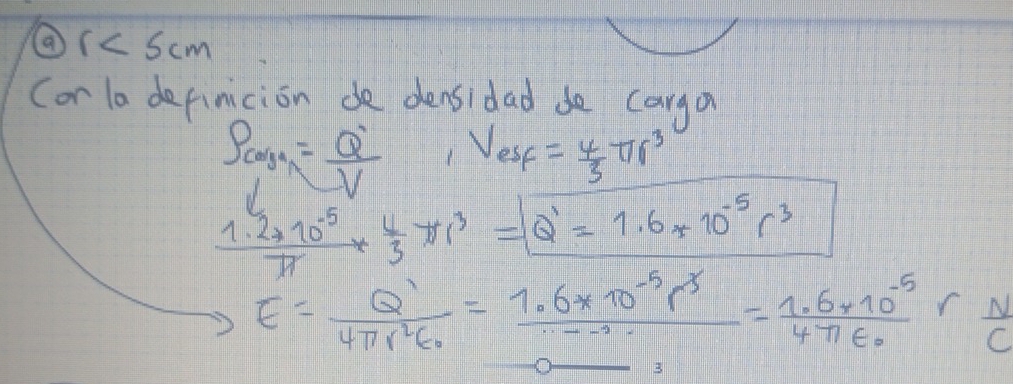 ⓐ r < 5cm
Con la definición de densidad de carga
ρcarga = Q' / V , Vesf = 4/3 πr³
1.2*10⁻⁵ / π * 4/3 πr³ = Q' = 1.6*10⁻⁵ r³
E = Q' / 4πr²ε₀ = 1.6*10⁻⁵ r³ / = 1.6*10⁻⁵ / 4πε₀ r N/C
3